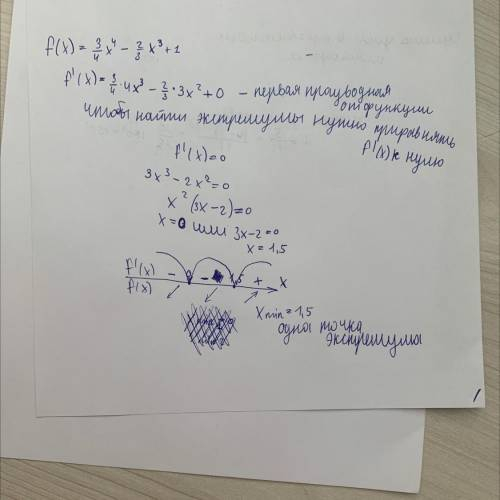 f(x) = 3/4 x⁴ - 2/3 x³ + 1
f'(x) = 3/4 · 4x³ - 2/3 · 3x² + 0 - первая
от функции
чтобы найти экстремумы нужно приравнять
f'(x) к нулю
f'(x) = 0
3x³ - 2x² = 0
x² (3x - 2) = 0
x = 0 или 3x - 2 = 0
x = 1,5
f'(x) - 0 - 1,5 + x
f(x)
Xmin = 1,5
одна точка
экстремумы